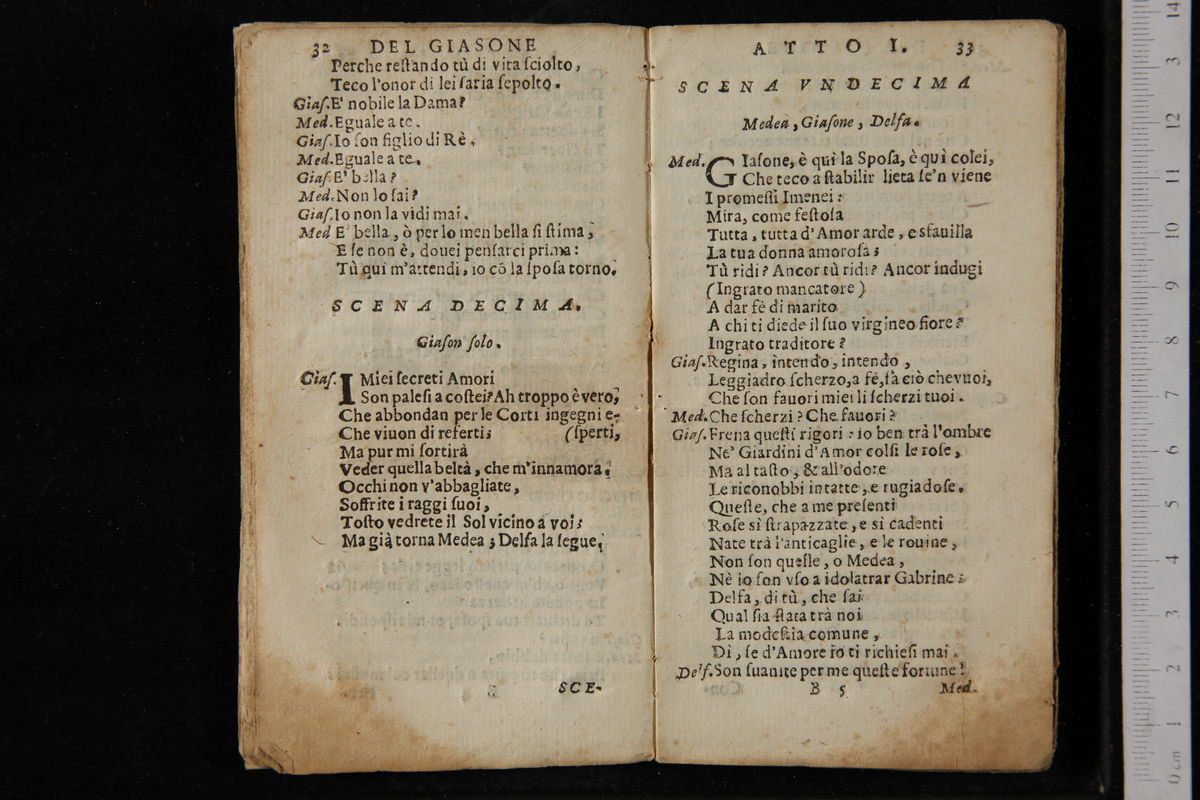 32 DEL GIASONE
Perche reſtando tù di vita ſciolto,
Teco l'onor di lei ſaria ſepolto.
Giaſ. E' nobile la Dama?
Med. Eguale a te.
Giaſ. Io ſon figlio di Rè.
Med. Eguale a te.
Giaſ. E' bella?
Med. Non lo ſai?
Giaſ. Io non la vidi mai.
Med E' bella, ò per lo men bella ſi ſtima,
E ſe non è, douei penſarci prima:
Tù quì m'attendi, io cō la ſpoſa torno.
SCENA DECIMA.
Giaſon ſolo.
Giaſ. I Miei ſecreti Amori
Son paleſi a coſtei? Ah troppo è vero,
Che abbondan per le Corti ingegni e-
Che viuon di referti; (ſperti,
Ma pur mi ſortirà
Veder quella beltà, che m'innamora.
Occhi non v'abbagliate,
Soffrite i raggi ſuoi,
Toſto vedrete il Sol vicino a voi:
Ma già torna Medea; Delfa la ſegue.
SCE-
ATTO I. 33
SCENA VNDECIMA
Medea, Giaſone, Delfa.
Med. Giaſone, è quì la Spoſa, è quì colei,
Che teco a ſtabilir lieta ſe'n viene
I promeſſi Imenei:
Mira, come feſtoſa
Tutta, tutta d'Amor arde, e sfauilla
La tua donna amoroſa;
Tù ridi? Ancor tù ridi? Ancor indugi
(Ingrato mancatore)
A dar fè di marito
A chi ti diede il ſuo virgineo fiore?
Ingrato traditore?
Giaſ. Regina, intendo, intendo,
Leggiadro ſcherzo, a fè, fà ciò che vuoi,
Che ſon fauori miei li ſcherzi tuoi.
Med. Che ſcherzi? Che fauori?
Giaſ. Frena queſti rigori: io ben trà l'ombre
Ne' Giardini d'Amor colſi le roſe,
Ma al taſto, & all'odore
Le riconobbi intatte, e rugiadoſe.
Queſte, che a me preſenti
Roſe sì ſtrapazzate, e sì cadenti
Nate trà l'anticaglie, e le rouine,
Non ſon quelle, o Medea,
Nè io ſon vſo a idolatrar Gabrine:
Delfa, di tù, che ſai
Qual ſia ſtata trà noi
La modeſtia comune,
Dì, ſe d'Amore io ti richieſi mai.
Delf. Son ſuanite per me queſte fortune!
B 5 Med.